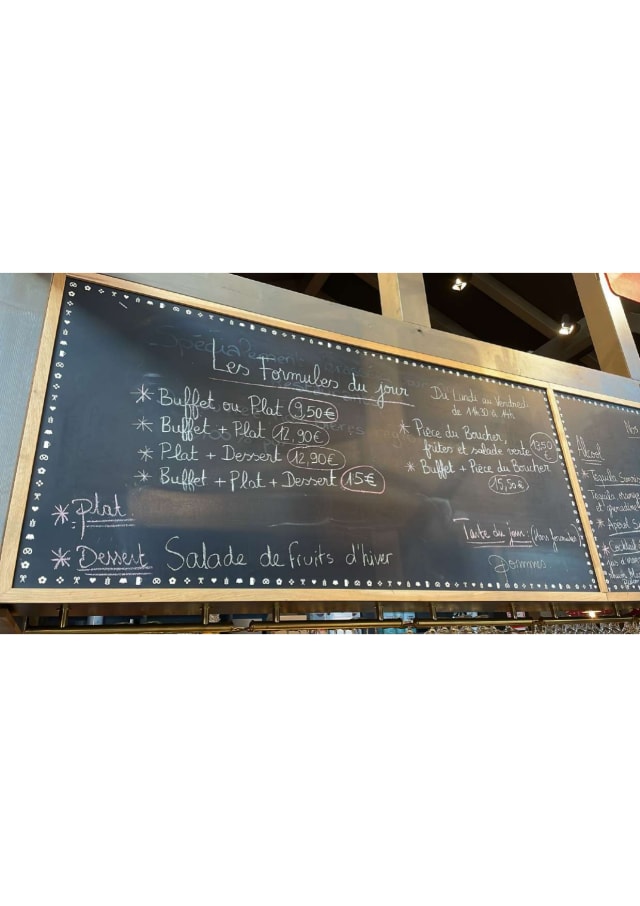 Les Formules du jour
* Buffet ou Plat 9,50€
* Buffet + Plat 12,90€
* Plat + Dessert 12,90€
* Buffet + Plat + Dessert 15€
* Plat
* Dessert Salade de fruits d'hiver
Du Lundi au Vendredi
de 11h30 à 14h
* Pièce du Boucher,
frites et salade verte 13,50€
* Buffet + Pièce du Boucher
15,50€
Tarte du jour: (hors formules)
Pommes
Nos
Alcool
* Tequila
Tequila
et
* Apérol